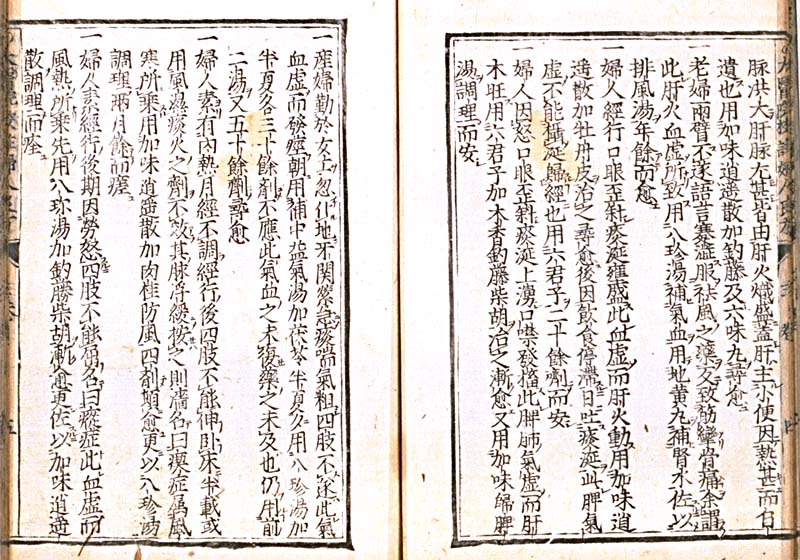 脉洪大肝脉左甚皆由肝火熾盛蓋肝主小便因熱甚而自
遺也用加味逍遙散加釣藤及六味丸尋愈
一老婦兩臂不遂語言蹇澁服祛風之藥反致筋攣骨痛余謂
此肝火血虛所致用八珍湯補氣血用地黃丸補腎水佐以
排風湯年餘而愈
一婦人經行口眼歪斜痰涎壅盛此血虛而肝火動用加味逍
遙散加牡丹皮治之尋愈後因飲食停滯日吐痰涎此脾氣
虛不能攝涎歸經也用六君子二十餘劑而安
一婦人因怒口眼歪斜痰涎上湧口噤發搐此脾肺氣虛而肝
木旺用六君子加木香釣藤柴胡治之漸愈又用加味歸脾
湯調理而安
一產婦勤於女工忽仆地牙關緊急痰喘氣粗四肢不遂此氣
血虛而發痙朝用補中益氣湯加茯苓半夏夕用八珍湯加
半夏各三十餘劑不應此氣血之未復藥之未及也仍用前
二湯又五十餘劑尋愈
一婦人素有內熱月經不調經行後四肢不能伸臥床半載或
用風濕痰火之劑不效其脉浮緩按之則濇名曰痿症屬風
寒所乘用加味逍遙散加肉桂防風四劑頓愈更以八珍湯
調理兩月餘而痊
一婦人素經行後期因勞怒四肢不能屈名曰痿症此血虛而
風熱所乘先用八珍湯加釣藤柴胡漸愈更佐以加味逍遙
散調理而痊